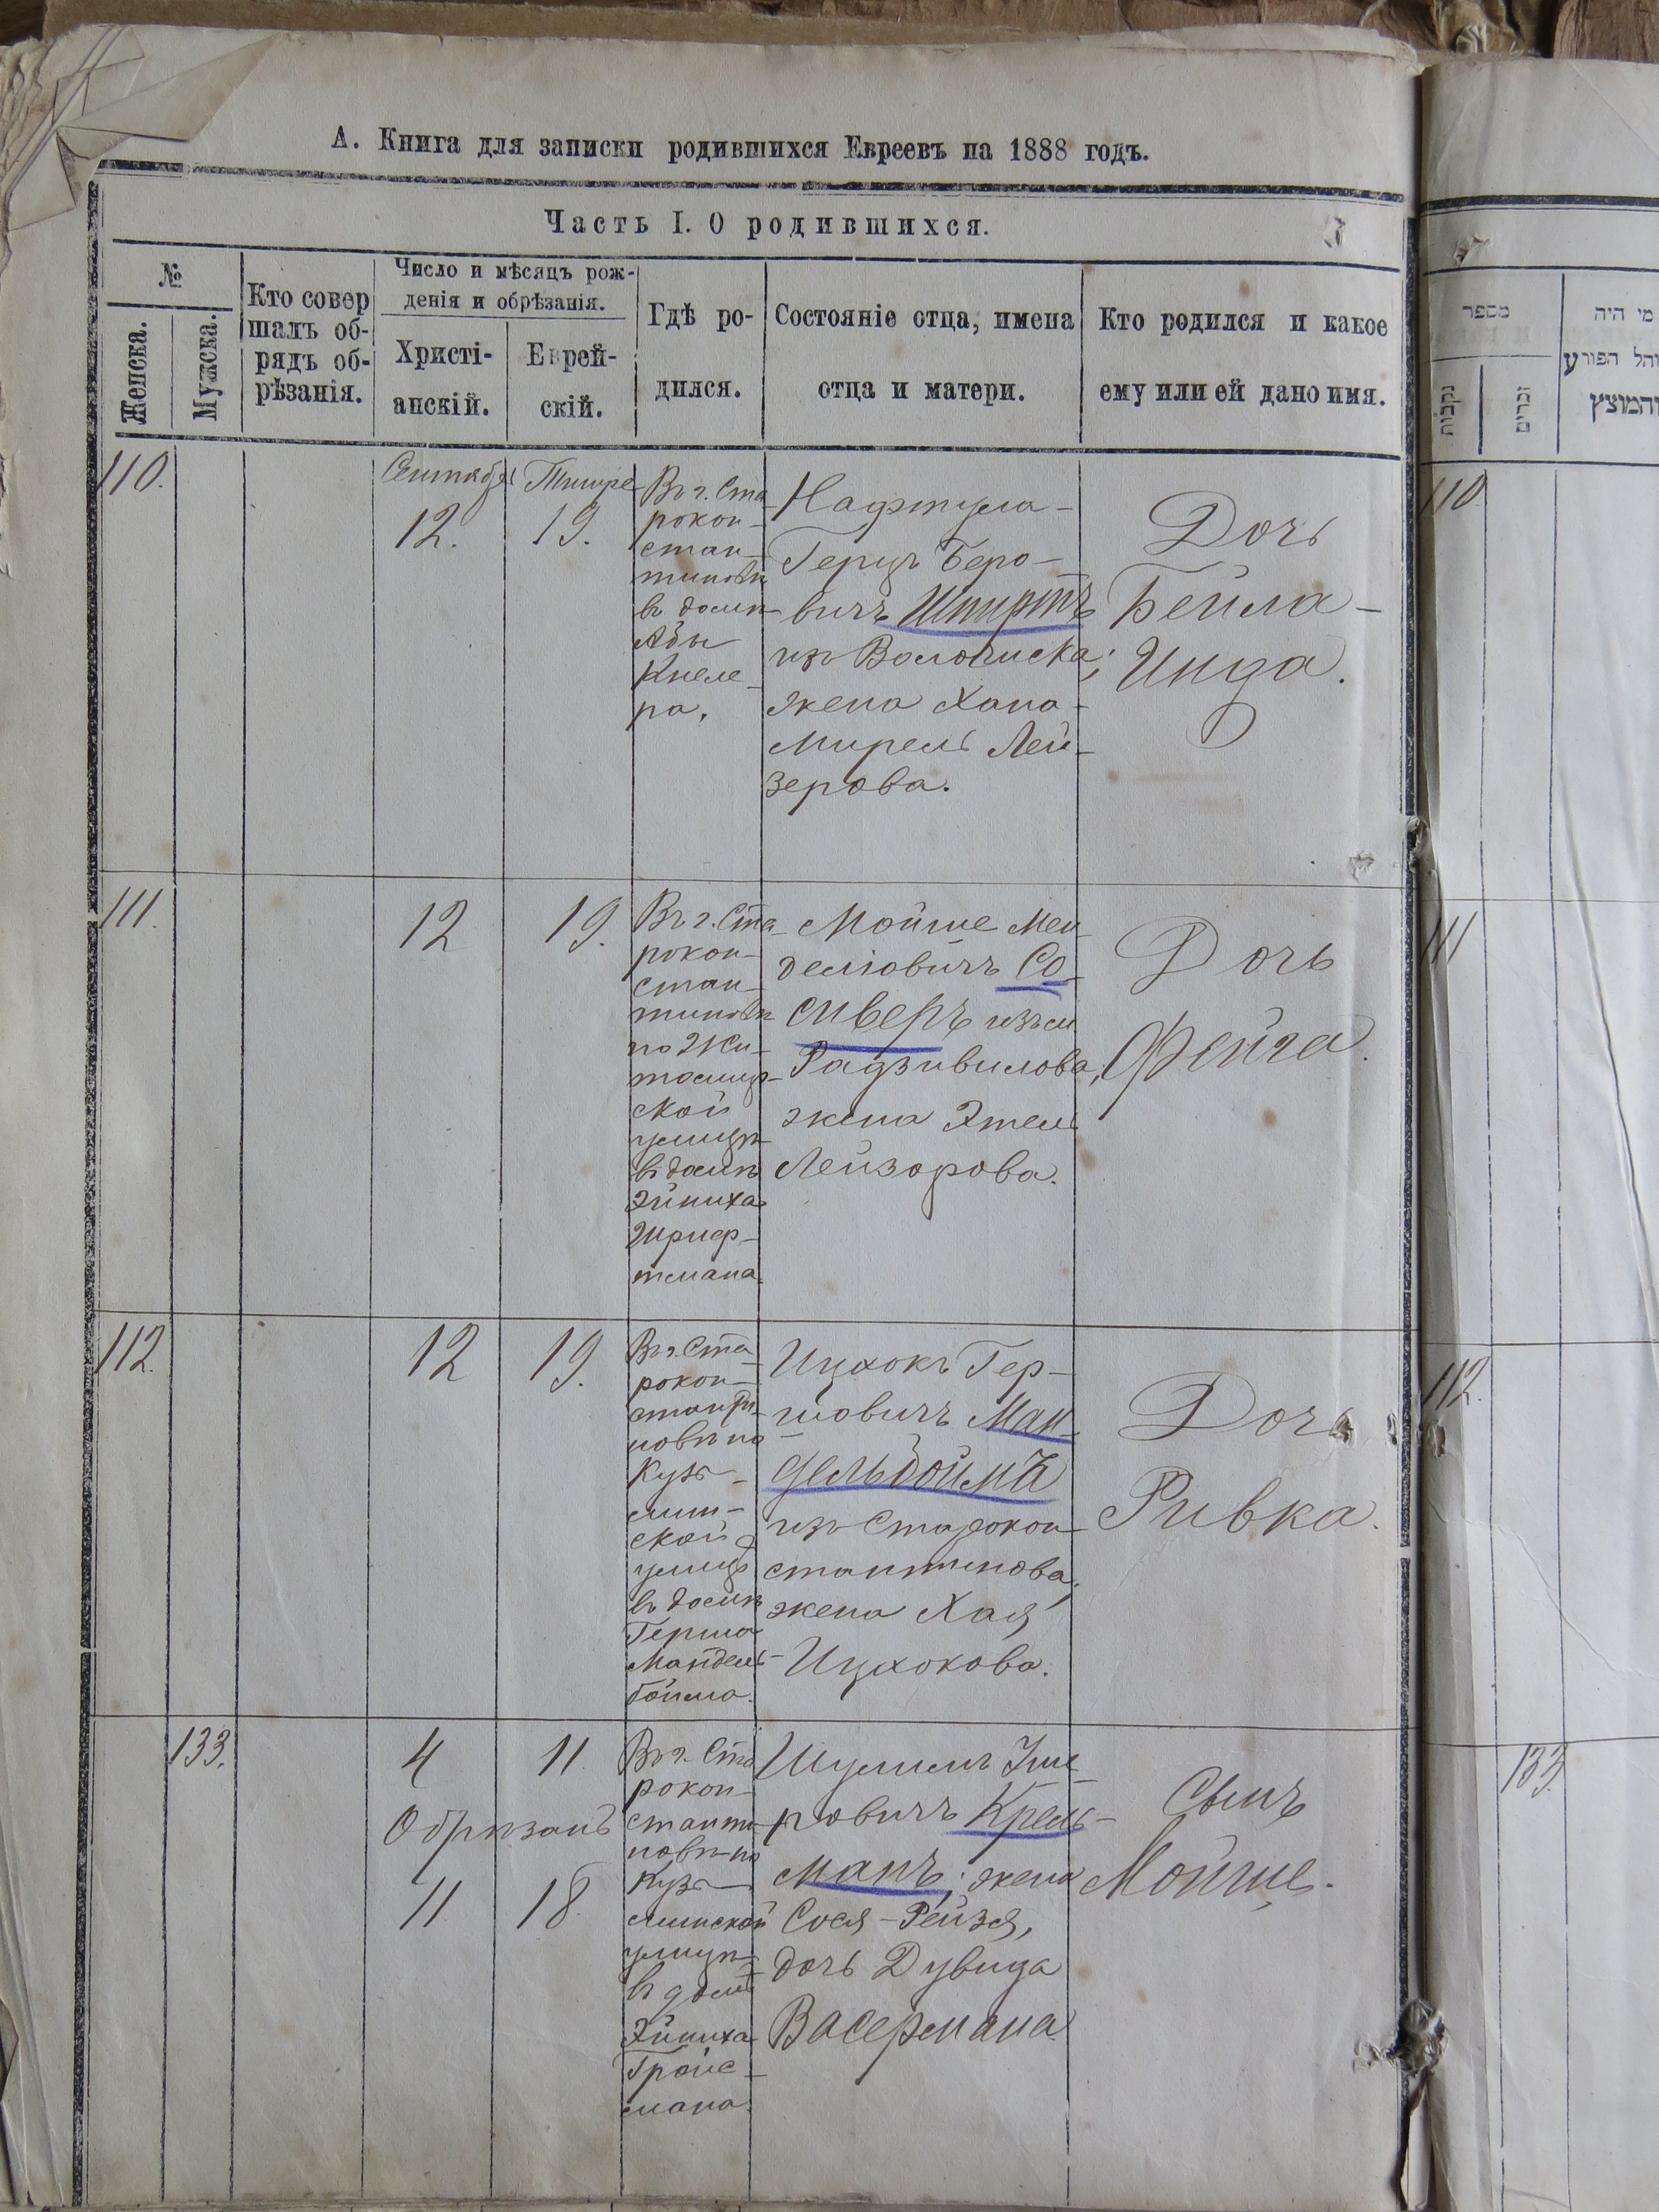 А. Книга для записки родившихся Евреевъ на 1888 годъ.
Часть I. О родившихся.
№
Женска.
Мужска.
Кто совер
шалъ об-
рядъ об-
рѣзанія.
Число и мѣсяцъ рож-
денія и обрѣзанія.
Христі-
анскій.
Еврей-
скій.
Гдѣ ро-
дился.
Состояніе отца, имена
отца и матери.
Кто родился и какое
ему или ей дано имя.
110.
Сентябрь
12.
Тишре
19.
Въ г. Ста
рокон-
стан-
тиновѣ
въ домѣ
Абы
Кнеле-
ра.
Нафтула-
Герцъ Беро-
вичъ Шпиртъ
изъ Волочиска;
жена Хана-
Мирель Лей-
зерова.
Дочь
Бейла-
Инда.
111.
12
19.
Въ г. Ста
рокон-
стан-
тиновѣ
по Жи-
томир-
ской
улицѣ
въ домѣ
Эйниха
Шриф-
тмана.
Мойше Мен
деліовичъ Со-
сиверъ изъ м
Радзивилова,
жена Этель
Лейзорова.
Дочь
Фейга.
112.
12
19.
Въ г. Ста
рокон-
станти-
новѣ по
Кузь-
мин-
ской
улицѣ
въ домѣ
Герша
Мандель-
бойма.
Ицхокъ Гер-
шовичъ Ман-
дельбоймъ
изъ Старокон-
стантинова,
жена Хая
Ицхокова.
Дочь
Ривка.
133.
4
11
Обрѣзанъ
11
18.
Въ г. Ста
рокон-
станти-
новѣ по
Кузь-
минской
улицѣ
въ домѣ
Эйниха
Гройс-
мана.
Шулимъ Уше-
ровичъ Крель-
манъ; жена
Сося-Рейзя,
дочь Дувида
Васермана
Сынъ
Мойше.
מספר
נקבות
זכרים
מי היה
והל הפורע
והמוצץ
110
111
112.
133.